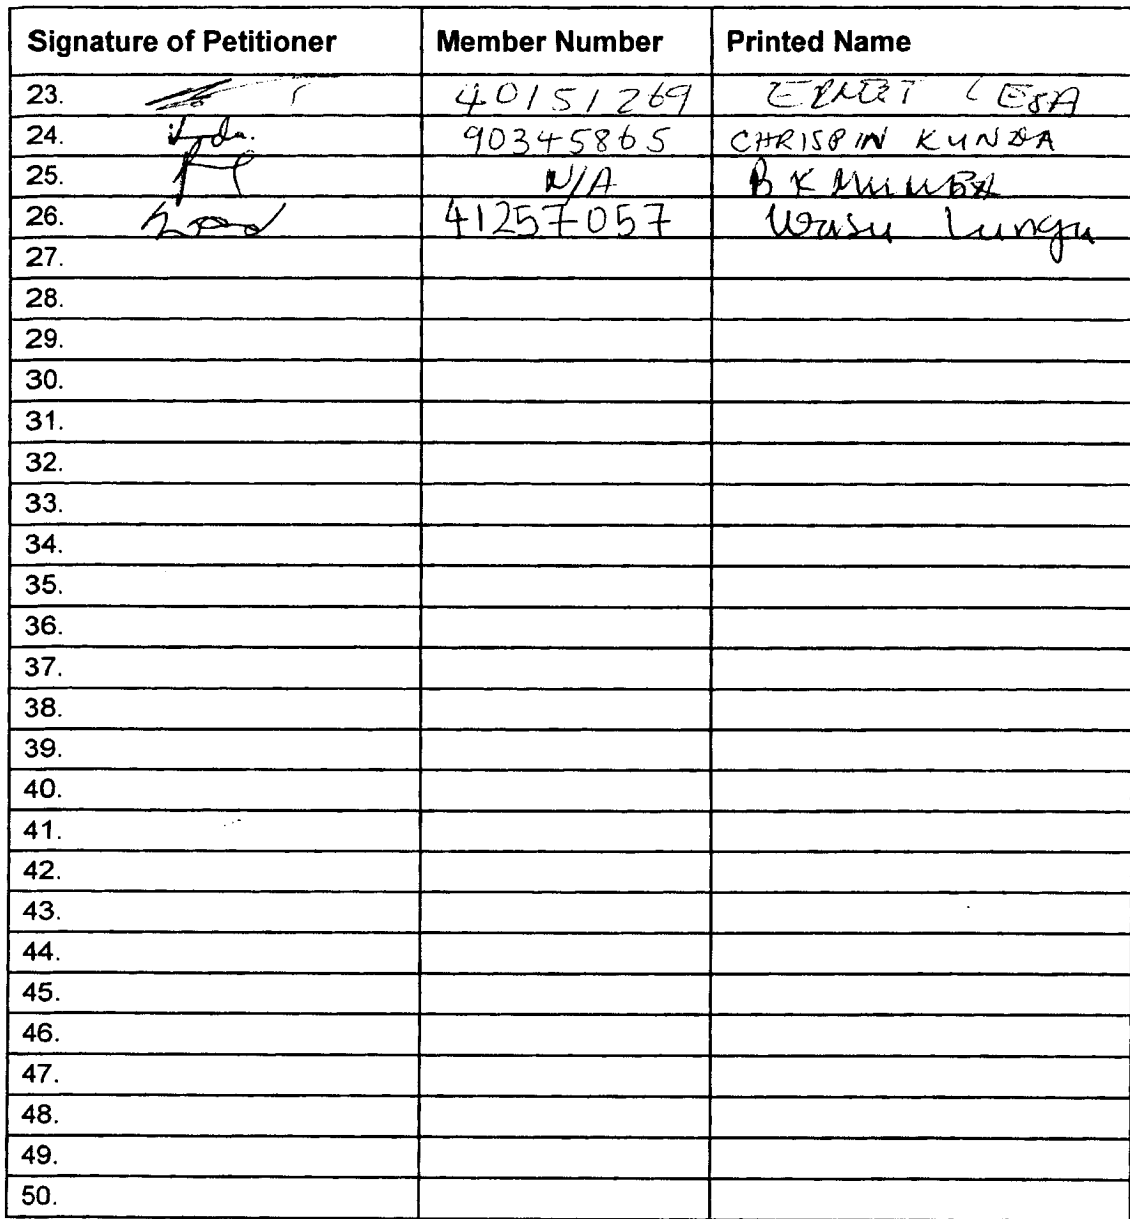 Signature of Petitioner Member Number Printed Name
23. 40151269 LESA
24. 90345865 CHRISPIN KUNDA
25. N/A B K
26. 41257057 Wasu Lungu
27.
28.
29.
30.
31.
32.
33.
34.
35.
36.
37.
38.
39.
40.
41.
42.
43.
44.
45.
46.
47.
48.
49.
50.